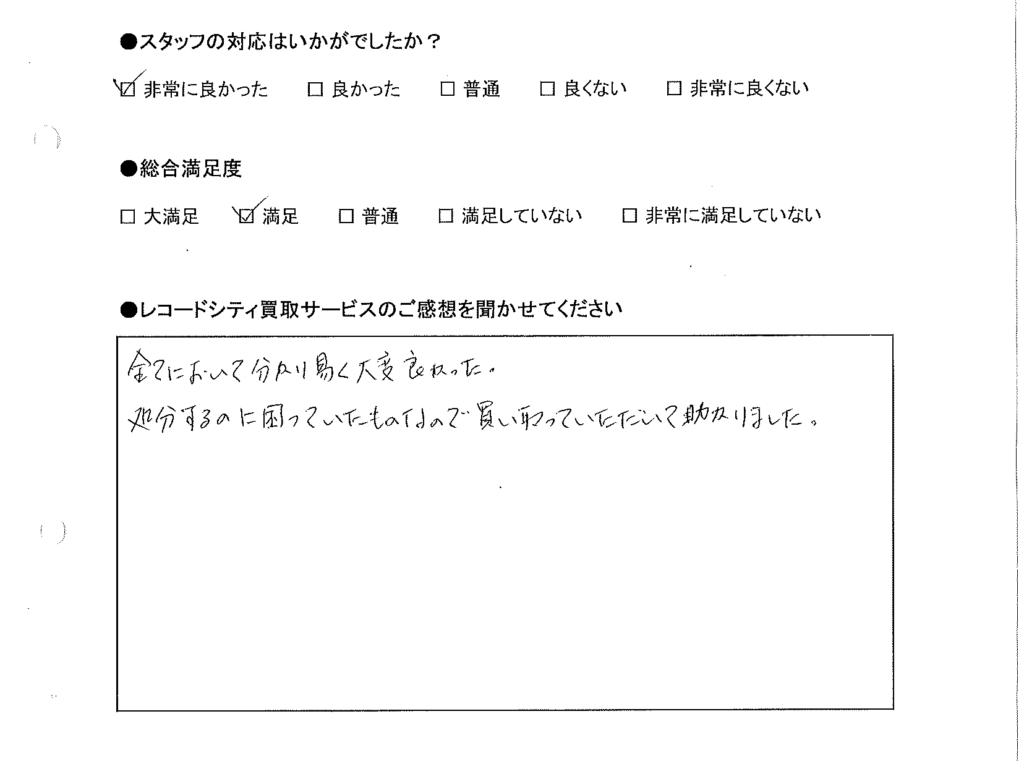 ●スタッフの対応はいかがでしたか？
☑ 非常に良かった □ 良かった □ 普通 □ 良くない □ 非常に良くない
●総合満足度
□ 大満足 ☑ 満足 □ 普通 □ 満足していない □ 非常に満足していない
●レコードシティ買取サービスのご感想を聞かせてください
全てにおいて分かり易く大変良かった。
処分するのに困っていたものなので買い取っていただいて助かりました。